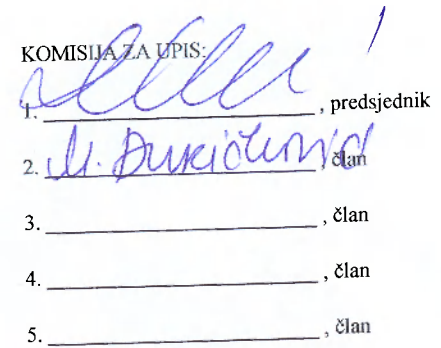 KOMISIJA ZA UPIS:
1. ____________________, predsjednik
2. M. ____________________, član
3. ____________________, član
4. ____________________, član
5. ____________________, član